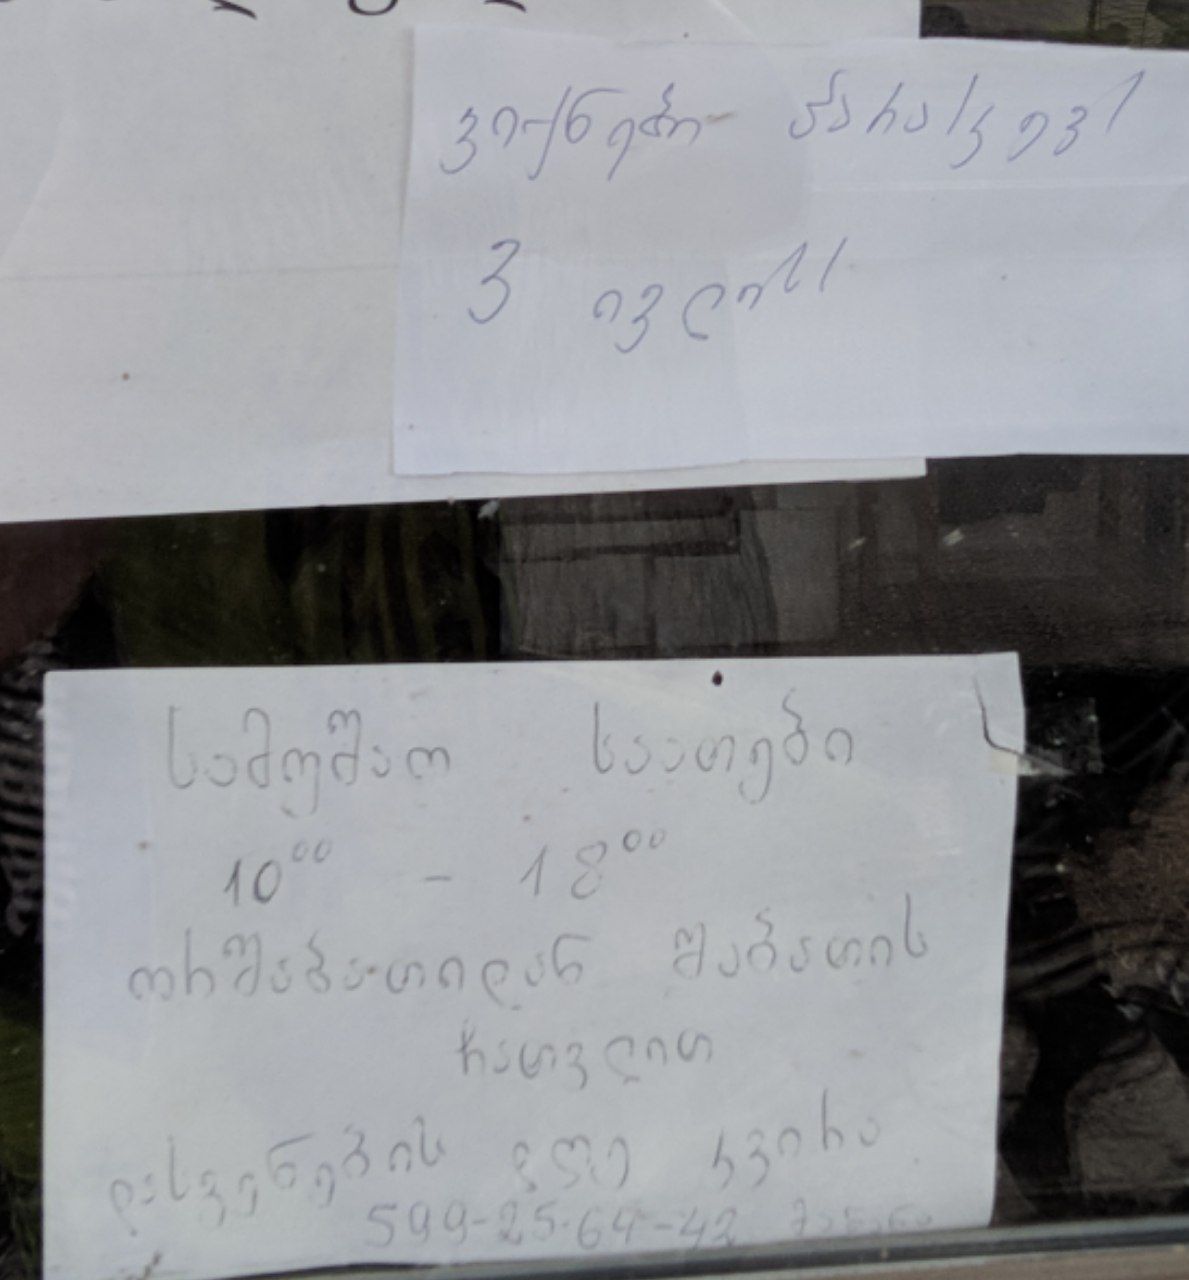 ვიქნები პარასკევს
3 ივლისს
სამუშაო საათები
10⁰⁰ - 18⁰⁰
ორშაბათიდან შაბათის
ჩათვლით
დასვენების დღე კვირა
599-25-64-42 მანანა